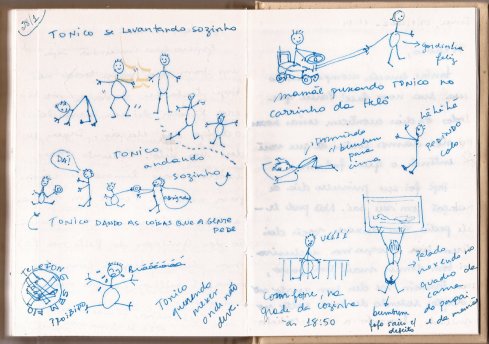 28/1
TONICO se Levantando sozinho
TONICO
andando
sozinho
DA!
OBRIGADO
TONICO DANDO AS COISAS QUE A GENTE
PEDE
TELEFONE
PROIBIDO
BUÁÁÁÁÁÁÁ
Tonico
querendo
mexer
onde não
deve
gordinha
feliz
mamãe puxando TONICO no
carrinho da Heló
dormindo
c/ bumbum
para
cima
hê hê hê
PEDINDO
colo
Com fome, na
grade da cozinha
às 18:50
Pelado
mexendo no
quadro da
cama
do papai
e da mamãe
bumbum
fofo saiu c/
defeito